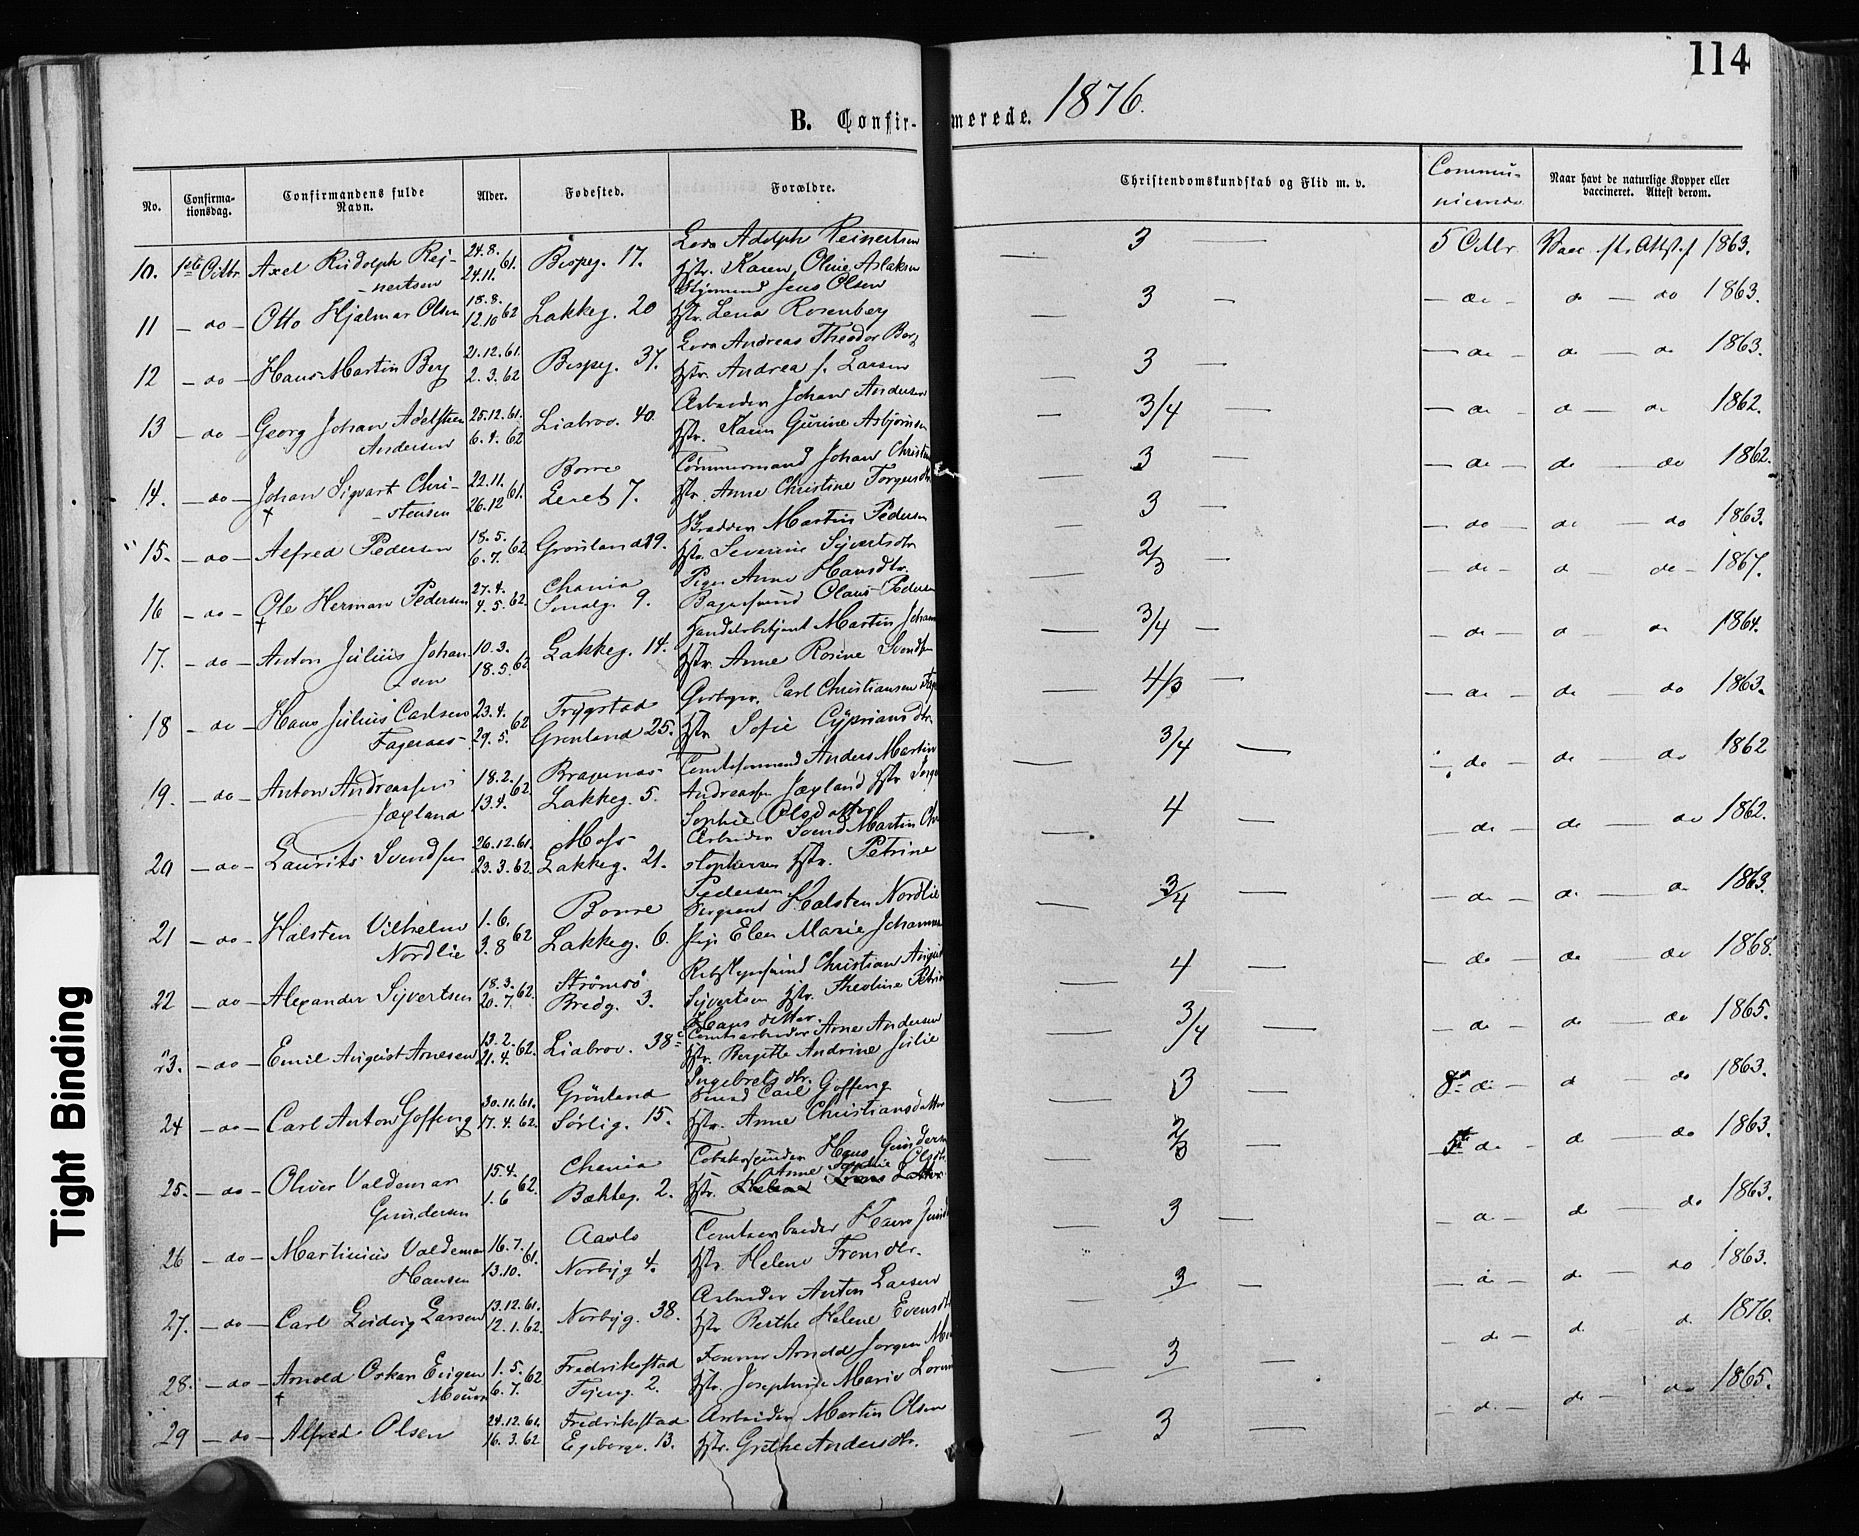 114
B. Confir- merede. 1876.
No. Confirma-tionsdag. Confirmandens fulde Navn. Alder. Fødested. Forældre. Christendomskundskab og Flid m. v. Commu-nicerede Naar havt de naturlige Kopper eller vaccineret. Attest derom.
10. 1ste Octbr Axel Rudolph Rej- 24.8. 61. Bispeg. 17. Adolph Reinertsen 3 — 5 Octbr Vacc. 1863.
nertsen 24.11. Hstr. Karen Oline Aslaksen
11 — do — Otto Hjalmar Olsen 18.8. 62 Lakkeg. 20 Styrmand Jens Olsen 3 — do — do — do 1863.
12.10 Hstr. Lena Rosenberg
12 — do — Hans Martin Berg 21.12.61. Bispeg. 37. Andreas Theodor Berg 3 — do — do — do 1863.
2.3.62 Hstr. Andrea Larsen
13 — do — Georg Johan Adolfsten 25.12.61. Liabrov. 40. Arbeider Johan Andersen 3/4 — do — do — do 1862.
Andersen 6.4.62 Hstr. Karen Gurine Asbjørnsen
14. — do — Johan Sigvart Chri- 22.11. 61. Borre Tømmermand Johan Christen 3 — do — do — do 1862.
+ stensen 26.12 Leret 7. Hstr. Anne Christine Torgersdtr.
15. — do — Alfred Pedersen 18.5. 62 Grønland 29. Martin Pedersen 3 — do — do — do 1863.
6.7. Hstr. Severine Syvertsdtr.
16 — do — Ole Herman Pedersen 27.4. 62. Chania Pige Anne Hansdtr. 2/3 — do — do — do — 1867.
+ 4.5. Smalg. 9. Bagersvend Olaus Pedersen
17. — do — Anton Julius Johan 10.3. 62 Lakkeg. 14. Handelsbetjent Martin Johan 3/4 — do — do — do 1864.
sen 18.5. Hstr. Anne Rosine Svendsen
18 — do — Hans Julius Carlsen 23.4. 62 Trygstad Carl Christiansen 4/3 — do — do — do 1863.
Fageraas 29.5. Grønland 25. Hstr. Sofie Cypriansdtr.
19. — do — Anton Andreassen 18.2. 62. Bragenæs Anders Martin 3/4 — do — do — do 1862
Jæxland 13.4. Lakkeg. 5. Andreassen Jæxland Hstr.
Sophie Olsdatter
20 — do — Laurits Svendsen 26.12.61. Moss Arbeider Svend Martin Chr 4 — do — do — do 1862.
23.3.62. Lakkeg. 21. stophersen Hstr. Petrine
Pedersen
21 — do — Halsten Vilhelm 1.6. 62 Borre Sergeant Halsten Nordlie 3/4 — do — do — do 1863.
Nordlie 3.8 Lakkeg. 6. Pige Elen Marie Johanne
22 — do — Alexander Syvertsen 18.3. 62. Strømsø Christian August 4 — do — do — do 1868.
20.7. Bredg. 3. Syvertsen Hstr. Theoline Petrine
Hansdatter
23. — do — Emil August Arnesen 13.2. 62. Liabrov. 38c Comtearbeider Arne Andersen 3/4 — do — do — do 1865.
21.4. Hstr. Birgitte Andrine Julie
Ingebretsdtr.
24 — do — Carl Anton Goffeng 30.11.61. Grønland Carl Goffeng 3 — 8 do — do — do 1863.
17.4.62. Sørlig. 15. Hstr. Anne Christiansdatter
25. — do — Oliver Valdemar 15.4. 62. Chania Hans Gundersen 2/3 — 5te do — do — do 1863.
Gundersen 1.6 Bækkeg. 2. Hstr. Anne Sophie Olsdtr.
26 — do — Martinius Valdemar 16.7. 61. Aaslo Comtearbeider Hans 3 — do — do — do 1863.
Hansen 13.10. Norbyg 4. Hstr. Helene Fransdtr.
27. — do — Carl Ludvig Larsen 13.12.61. Norbyg. 38. Arbeider Anton Larsen 3 — do — do — do 1863.
12.1.62. Hstr Berthe Helene Evensdtr
28. — do — Arnold Oskar Eugen 1.5. 62 Fredrikstad Former Arnold Jørgen 3 — do — do — do 1876.
+ Mouss 6.7. Tøjeng. 2. Hstr. Josephine Marie
29 — do — Alfred Olsen 24.12.61. Fredrikstad Arbeider Martin Olsen 3 — do — do — do 1865.
16.3.62 Egebergv. 13. Hstr. Grethe Andersdtr.
Tight Binding